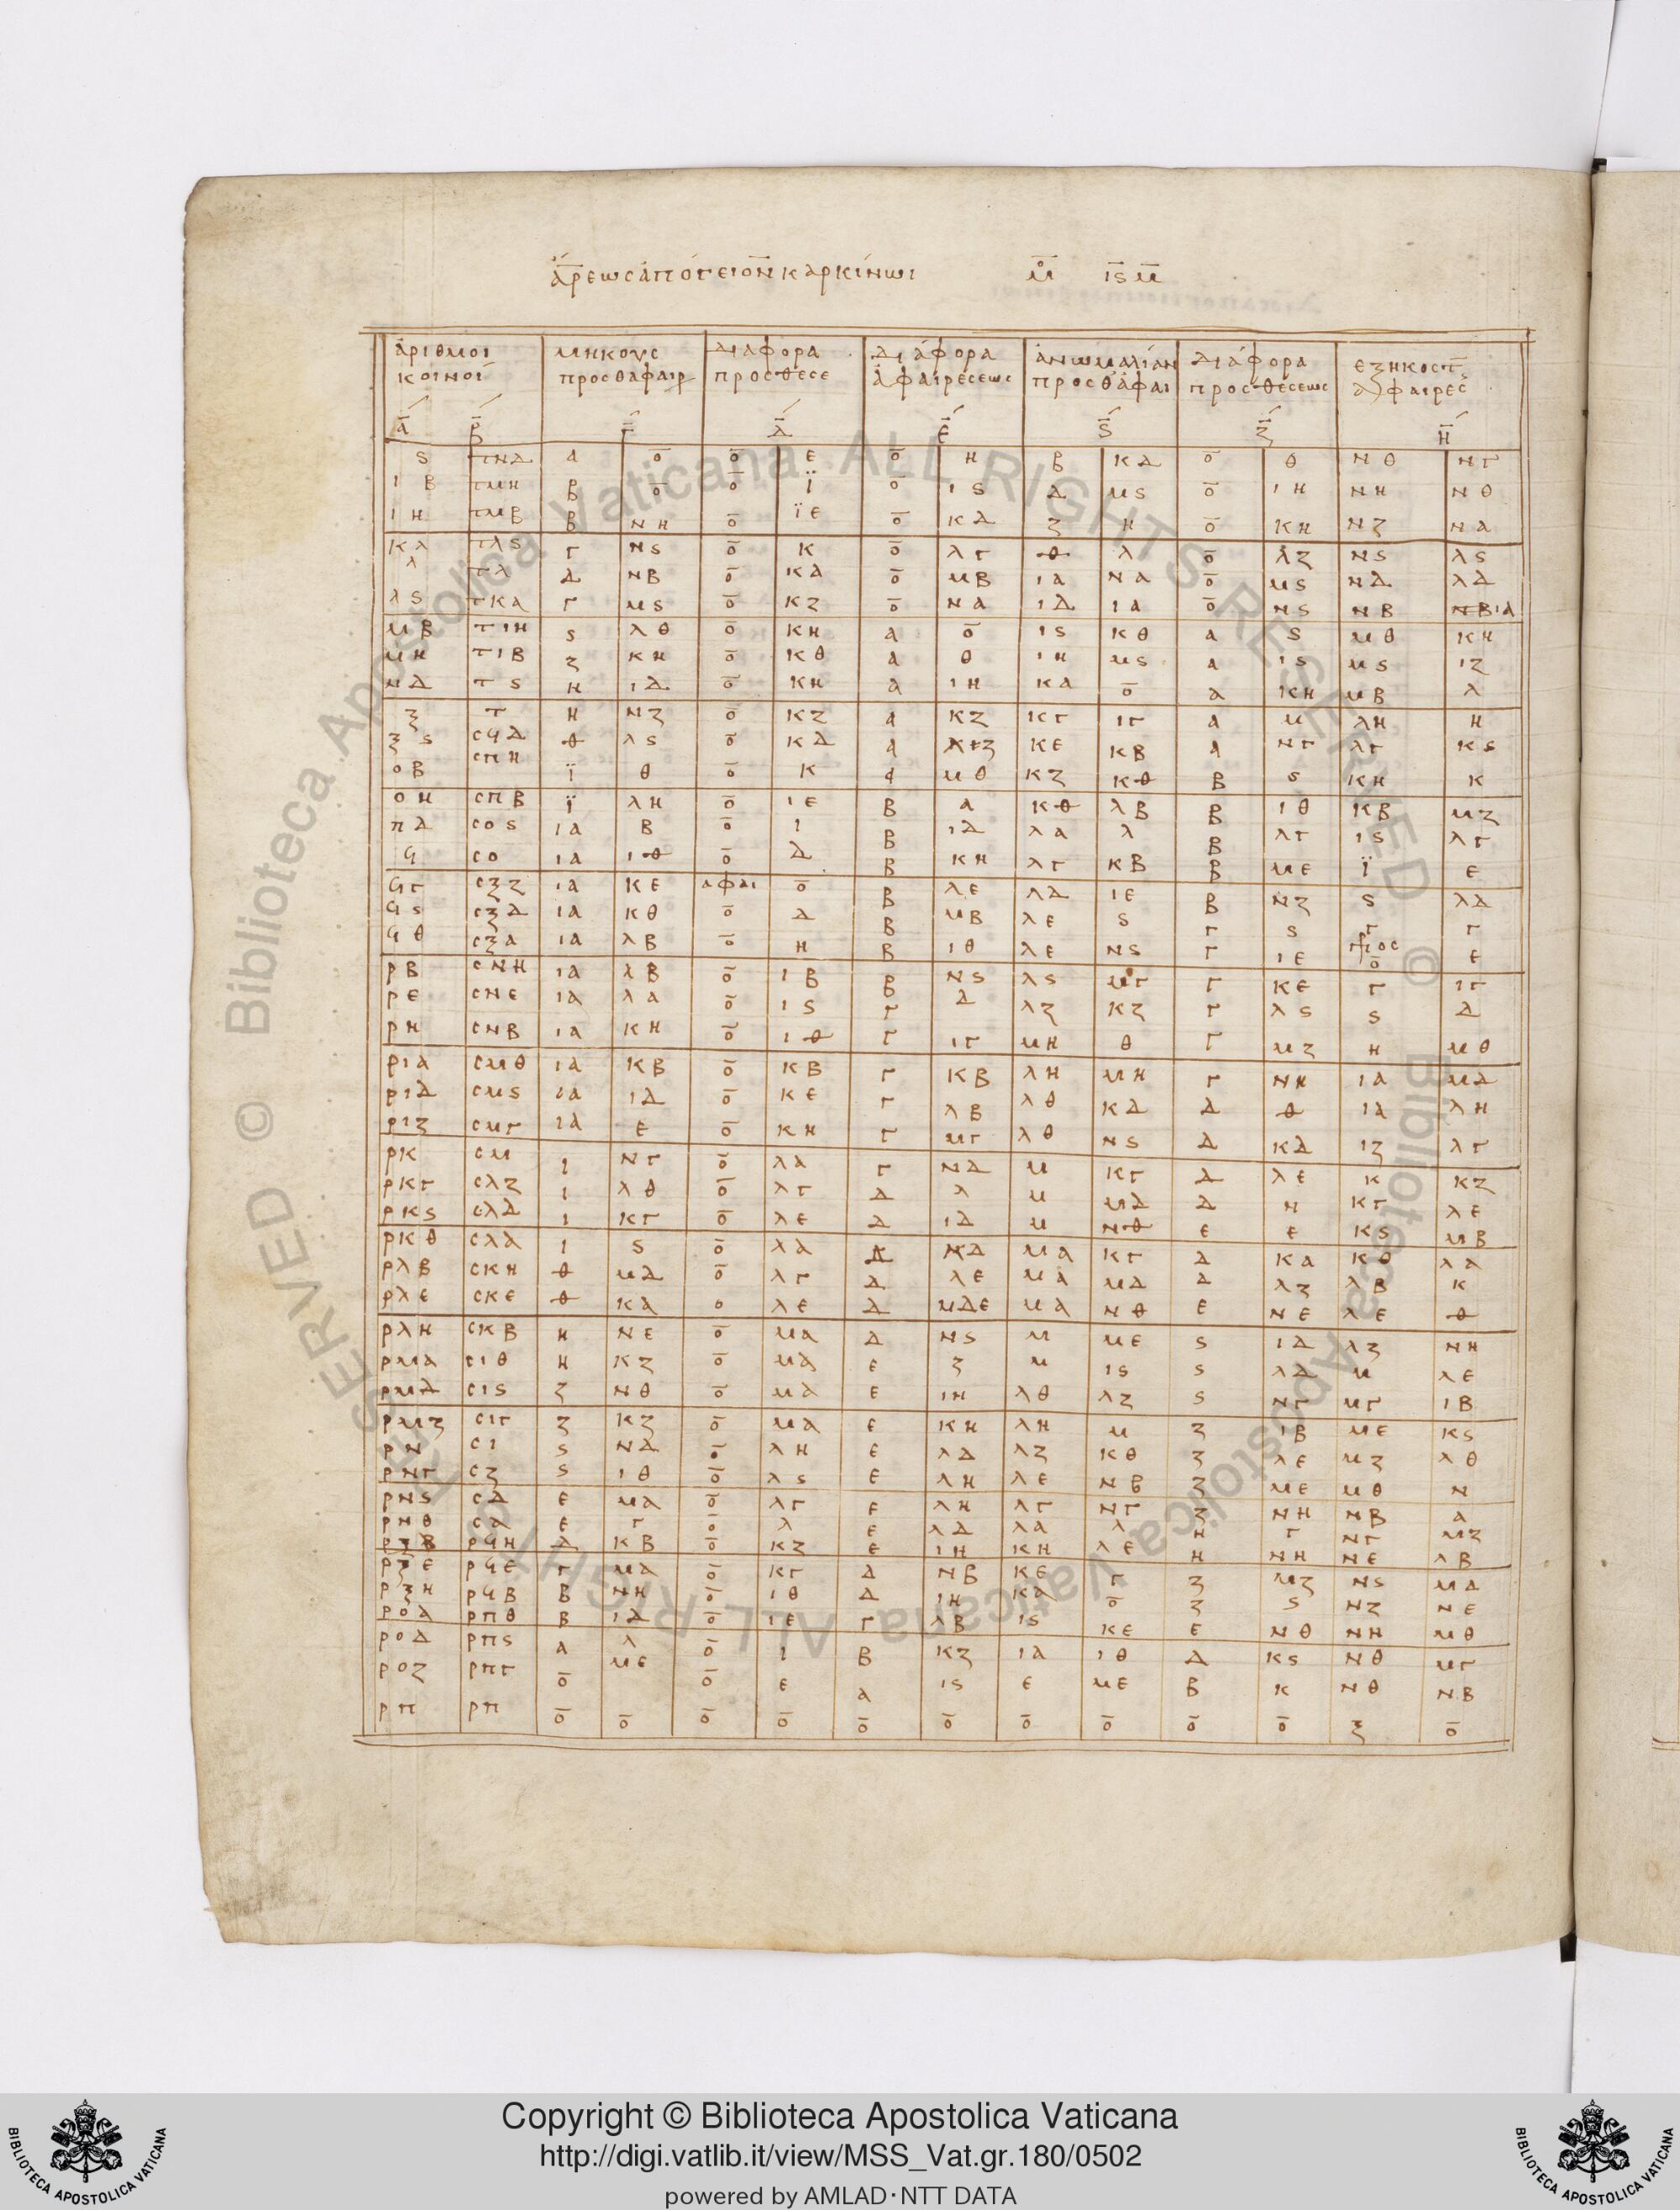 ἄρεως ἀπόγειον καρκίνωι μ̊ ις μ
ἀριθμοι κοινοί μηκους προσθαφαιρ διαφορα προσθεσε διάφορα ἀφαιρέσεως ἀνωμαλίαν προσθάφαι διάφορα προσθέσεως εξηκοστ αφαιρες
α β γ δ ε ς ζ η
ς τνδ α ο ο ε ο η β κδ ο θ νθ νγ
ιβ τμη β ο ο ι ο ις δ μς ο ιη νη νθ
ιη τμβ β νη ο ιε ο κδ ζ η ο κη νζ να
κδ τλς γ νς ο κ ο λγ θ λ ο λζ νς λς
λ τλ δ νβ ο κδ ο μβ ια να ο μς νδ λδ
λς τκδ γ μς ο κζ ο να ιδ ια ο νς νβ νβια
μβ τιη ς λθ ο κη α ο ις κθ α ς μθ κη
μη τιβ ζ κη ο κθ α θ ιη μς α ις μς ιζ
νδ τς η ιδ ο κη α ιη κα ο α κη μβ λ
ξ τ η νζ ο κζ α κζ κγ ιγ α μ λη η
ξς ϲϟδ θ λς ο κδ α κε κβ α νγ λγ κς
οβ ϲπη ι θ ο κ α μθ κζ κθ β ς κη κ
οη ϲπβ ι λη ο ιε β α κθ λβ β ιθ κβ μζ
πδ ϲος ια β ο ι β ιδ λα λ β λγ ις λγ
ϟ ϲο ια ιθ ο δ β κη λγ κβ β με ι ε
ϟγ ϲξζ ια κε αφαι ο β λε λδ ιε β νζ ς λδ
ϟς ϲξδ ια κθ ο δ β μβ λε ς γ ς γ γ
ϟθ ϲξα ια λβ ο η β ιθ λε νς γ ιε ο ε
ρβ ϲνη ια λβ ο ιβ β νς λς μγ γ κε γ ιγ
ρε ϲνε ια λα ο ις γ δ λζ κζ γ λς ς δ
ρη ϲνβ ια κη ο ιθ γ ιγ μη θ γ μζ η μθ
ρια ϲμθ ια κβ ο κβ γ κβ λη μη γ νη ια μδ
ριδ ϲμς ια ιδ ο κε γ λβ λθ κδ δ θ ια λη
ριζ ϲμγ ια ε ο κη γ μγ λθ νς δ κδ ιζ λγ
ρκ ϲμ ι νγ ο λα γ νδ μ κγ δ λε κ κζ
ρκγ ϲλζ ι λθ ο λγ δ λ μ μδ δ ν κγ λε
ρκς ϲλδ ι κγ ο λε δ ιδ μ νθ ε ε κς μβ
ρκθ ϲλα ι ς ο λα δ κδ μα κγ δ κα κθ λα
ρλβ ϲκη θ μδ ο λγ δ λε μα μδ δ λζ λβ κ
ρλε ϲκε θ κα ο λε δ μδε μα νθ ε νε λε θ
ρλη ϲκβ η νε ο μα δ νς μ με ς ιδ λζ νη
ρμα ϲιθ η κζ ο μα ε ζ μ ις ς λδ μ λε
ρμδ ϲις ζ νθ ο μα ε ιη λθ λζ ς νγ μγ ιβ
ρμζ ϲιγ ζ κζ ο μα ε κη λη μ ζ ιβ με κς
ρν ϲι ς νδ ο λη ε λδ λζ κθ ζ λε μζ λθ
ρνγ ϲζ ς ιθ ο λς ε λη λε νβ ζ με μθ ν
ρνς ϲδ ε μα ο λγ ε λη λγ νγ ζ νη νβ α
ρνθ ϲα ε γ ο λ ε λδ λα λ η γ νγ μζ
ρξβ ρϟη δ κβ ο κζ ε ιη κη λε η νη νε λβ
ρξε ρϟε γ μα ο κγ δ νβ κε γ ζ μζ νς μδ
ρξη ρϟβ β νη ο ιθ δ ιη κα ο ζ ς νζ νε
ροα ρπθ β ιδ ο ιε γ λβ ις κε ε νθ νη μθ
ροδ ρπς α λ ο ι β κζ ια ιθ δ κς νθ μγ
ροζ ρπγ ο με ο ε α ις ε με β κ νθ νβ
ρπ ρπ ο ο ο ο ο ο ο ο ο ο ξ ο
Copyright © Biblioteca Apostolica Vaticana
http://digi.vatlib.it/view/MSS_Vat.gr.180/0502
powered by AMLAD·NTT DATA
BIBLIOTECA APOSTOLICA VATICANA
BIBLIOTECA APOSTOLICA VATICANA